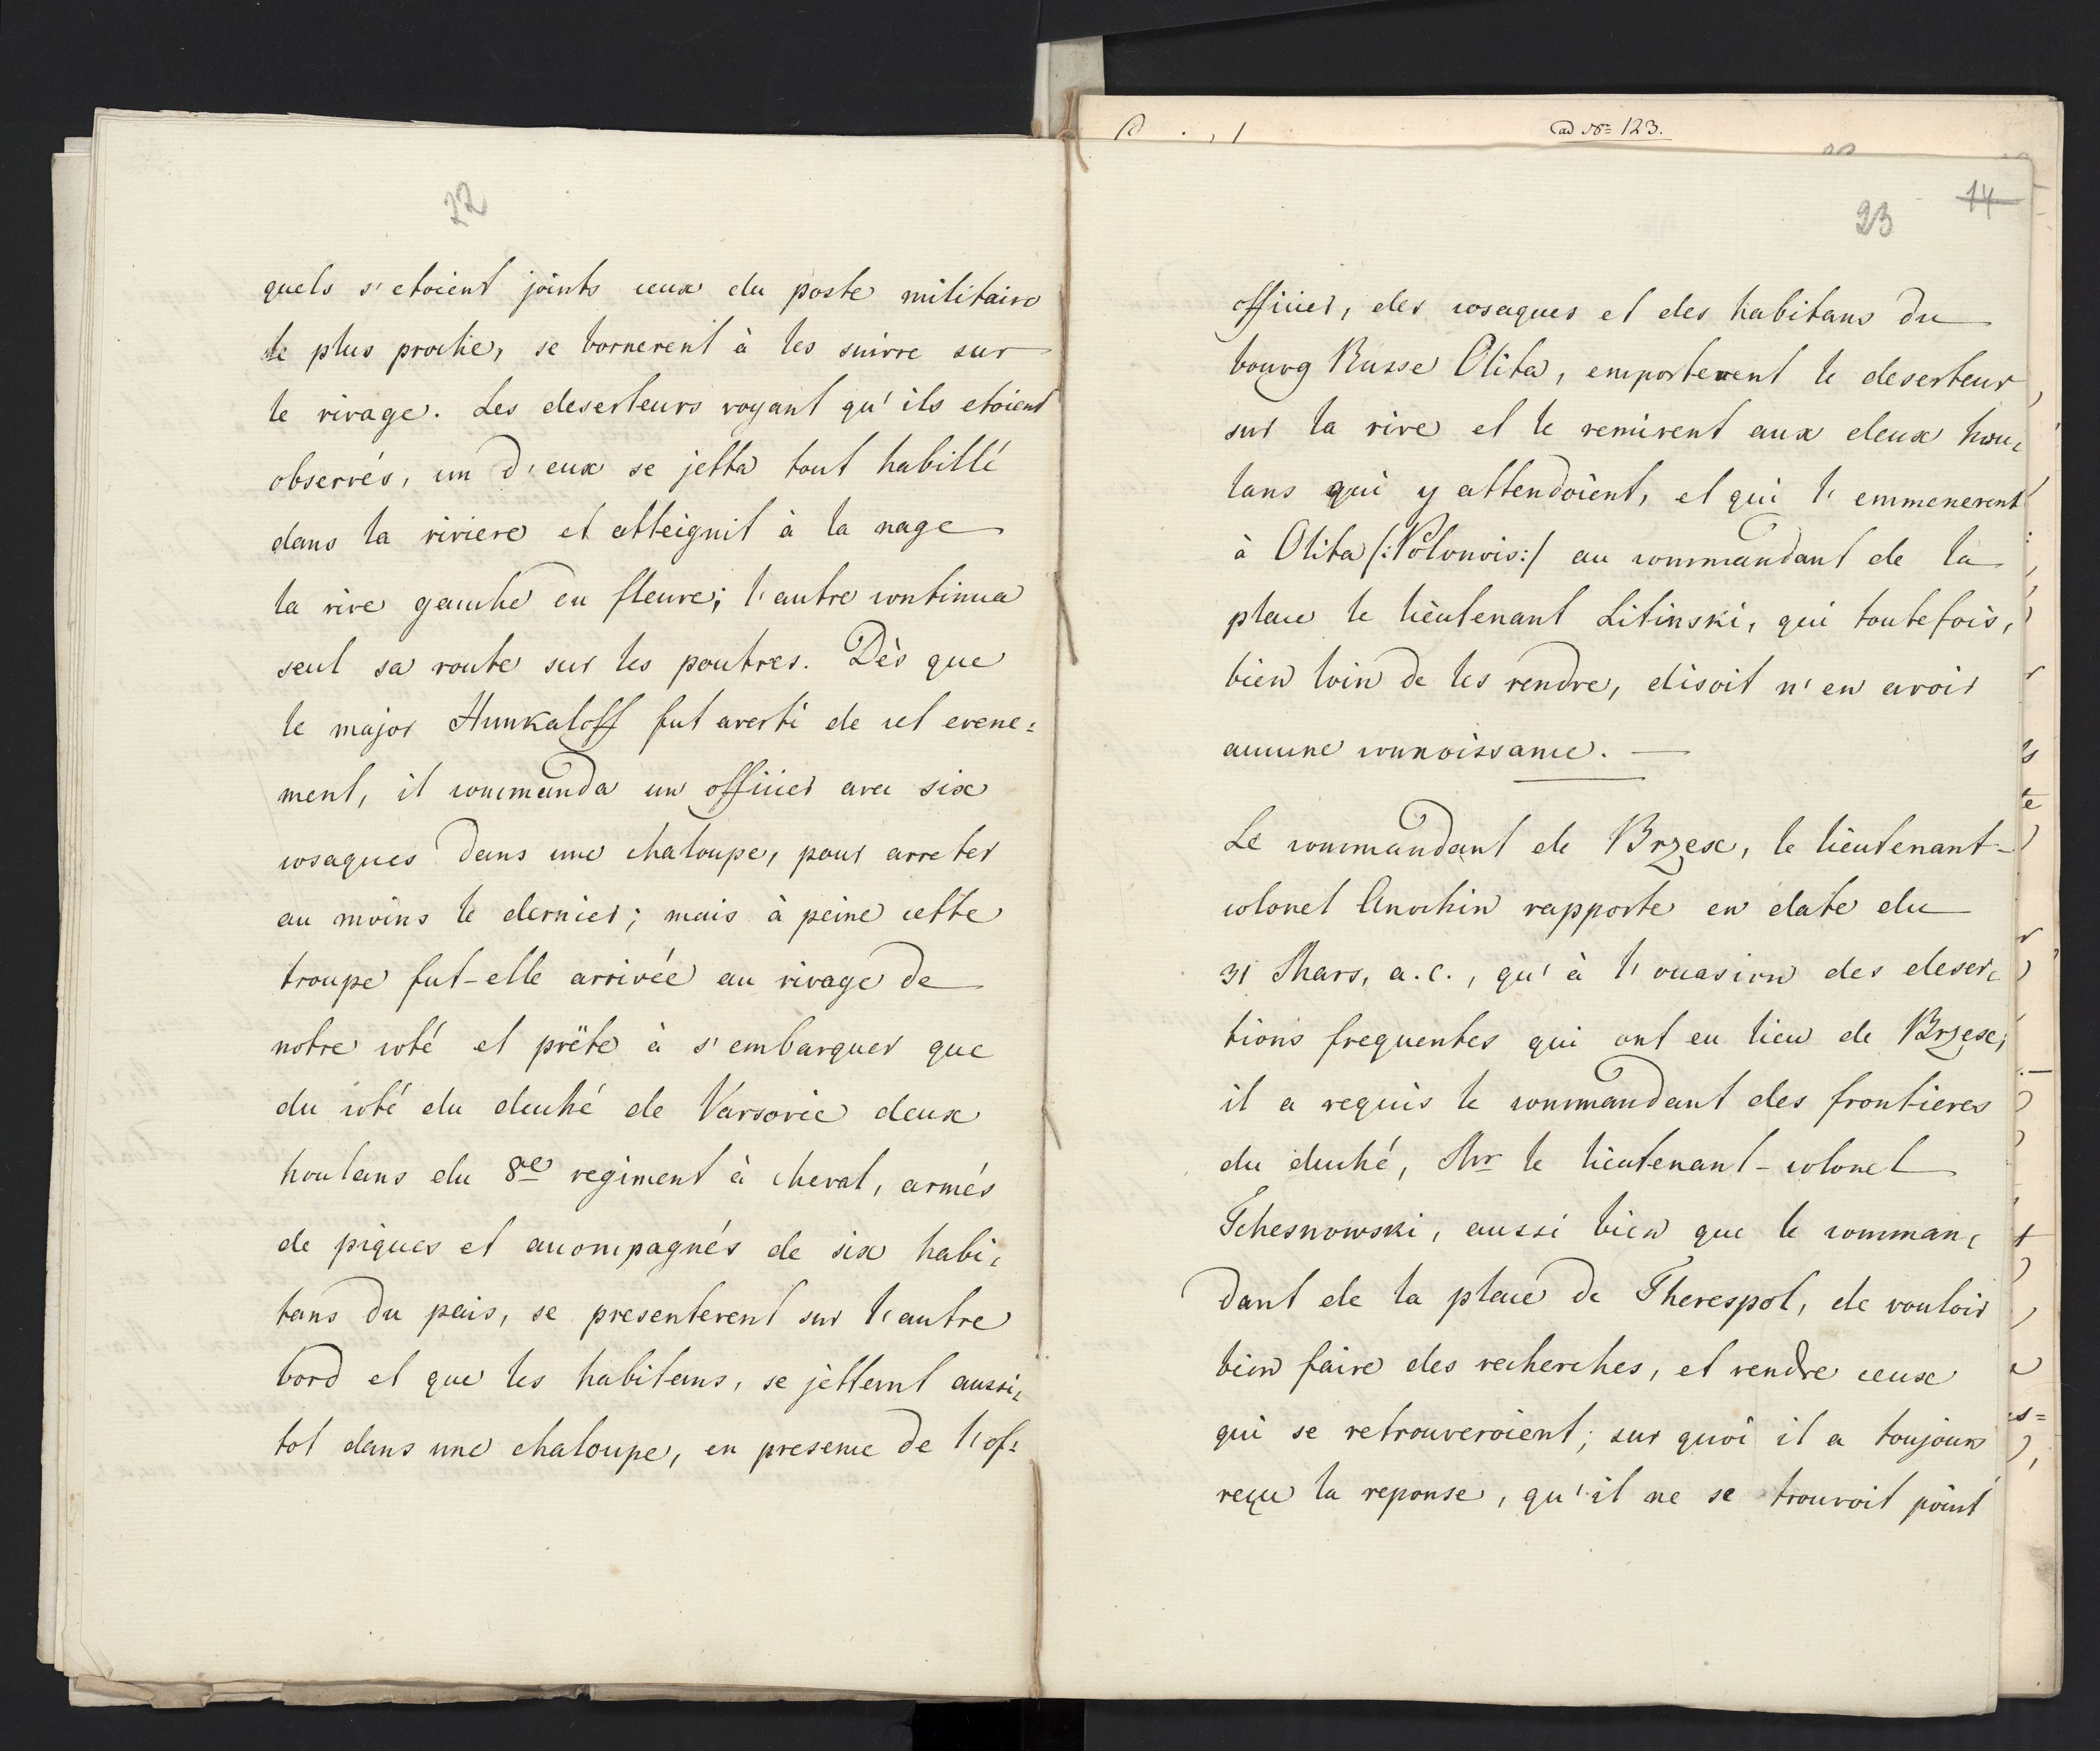 22
quels s'etoient joints ceux du poste militaire
le plus proche, se bornerent à les suivre sur
le rivage. Les deserteurs voyant qu'ils etoient
observés, un d'eux se jetta tout habillé
dans la riviere et atteignit à la nage
la rive gauche du fleuve; l'autre continua
seul sa route sur les poutres. Dès que
le major Hunkaloff fut averti de cet evene=
ment, il commanda un officier avec six
cosaques dans une chaloupe, pour arreter
au moins le dernier; mais à peine cette
troupe fut-elle arrivée au rivage de
notre coté et prête à s'embarquer que
du coté du duché de Varsovie deux
houlans du 8e regiment à cheval, armés
de piques et accompagnés de six habi=
tans du pais, se presenterent sur l'autre
bord et que les habitans, se jetterent aussi=
tot dans une chaloupe, en presence de l'of=
ad No 123.
14
23
officier, des cosaques et des habitans du
bourg Russe Olita, emporterent le deserteur
sur la rive et le remirent aux deux hou=
lans qui y attendoient, et qui l'emmenerent
à Olita /:Polonois:/ au commandant de la
place le lieutenant Litinski, qui toutefois,
bien loin de les rendre, disoit n'en avoir
aucune connoissance. —
Le commandant de Brzesc, le lieutenant-
colonel Anochin rapporte en date du
31 Mars, a.c., qu'à l'occasion des deser=
tions frequentes qui ont eu lieu de Brzesc,
il a requis le commandant des frontieres
du duché, Mr le lieutenant-colonel
Tchesnowski, aussi bien que le comman=
dant de la place de Therespol, de vouloir
bien faire des recherches, et rendre ceux
qui se retrouveroient; sur quoi il a toujours
reçu la reponse, qu'il ne se trouvoit point